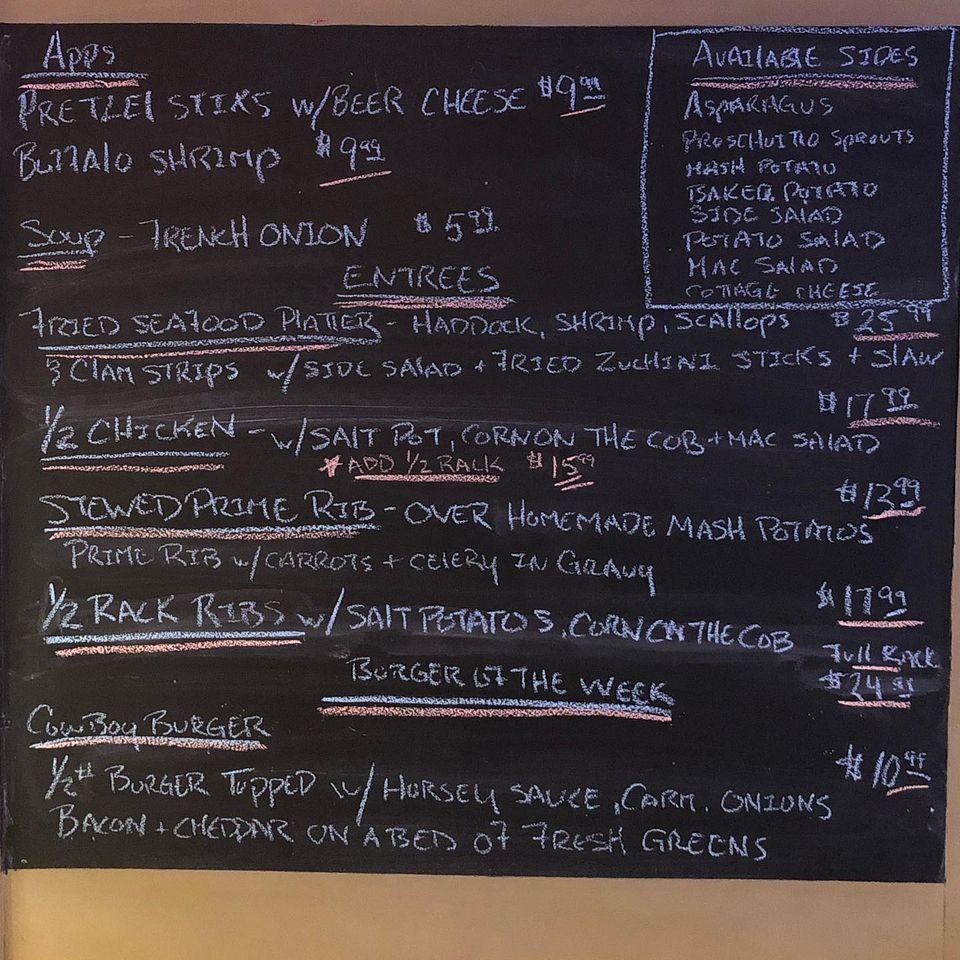 Apps
PRETZEL STIKS w/BEER CHEESE $9.99
BUFFALO SHRIMP $9.99
SOUP - FRENCH ONION $5.99
AVAILABLE SIDES
ASPARAGUS
PROSCHUITTO SPROUTS
MASH POTATO
BAKED POTATO
SIDE SALAD
POTATO SALAD
MAC SALAD
COTTAGE CHEESE
ENTREES
FRIED SEAFOOD PLATTER - HADDOCK, SHRIMP, SCALLOPS $25.99
& CLAM STRIPS w/SIDE SALAD + FRIED ZUCHINI STICKS + SLAW
$17.99
1/2 CHICKEN - w/SALT POT, CORN ON THE COB + MAC SALAD
*ADD 1/2 RACK $15.99
$13.99
STEWED PRIME RIB - OVER HOMEMADE MASH POTATOS
PRIME RIB w/CARROTS + CELERY IN GRAVY
1/2 RACK RIBS w/SALT POTATOS, CORN ON THE COB $17.99
FULL RACK
$24.99
BURGER OF THE WEEK
COWBOY BURGER
$10.99
1/2# BURGER TOPPED w/HORSEY SAUCE, CARM. ONIONS
BACON + CHEDDAR ON A BED OF FRESH GREENS